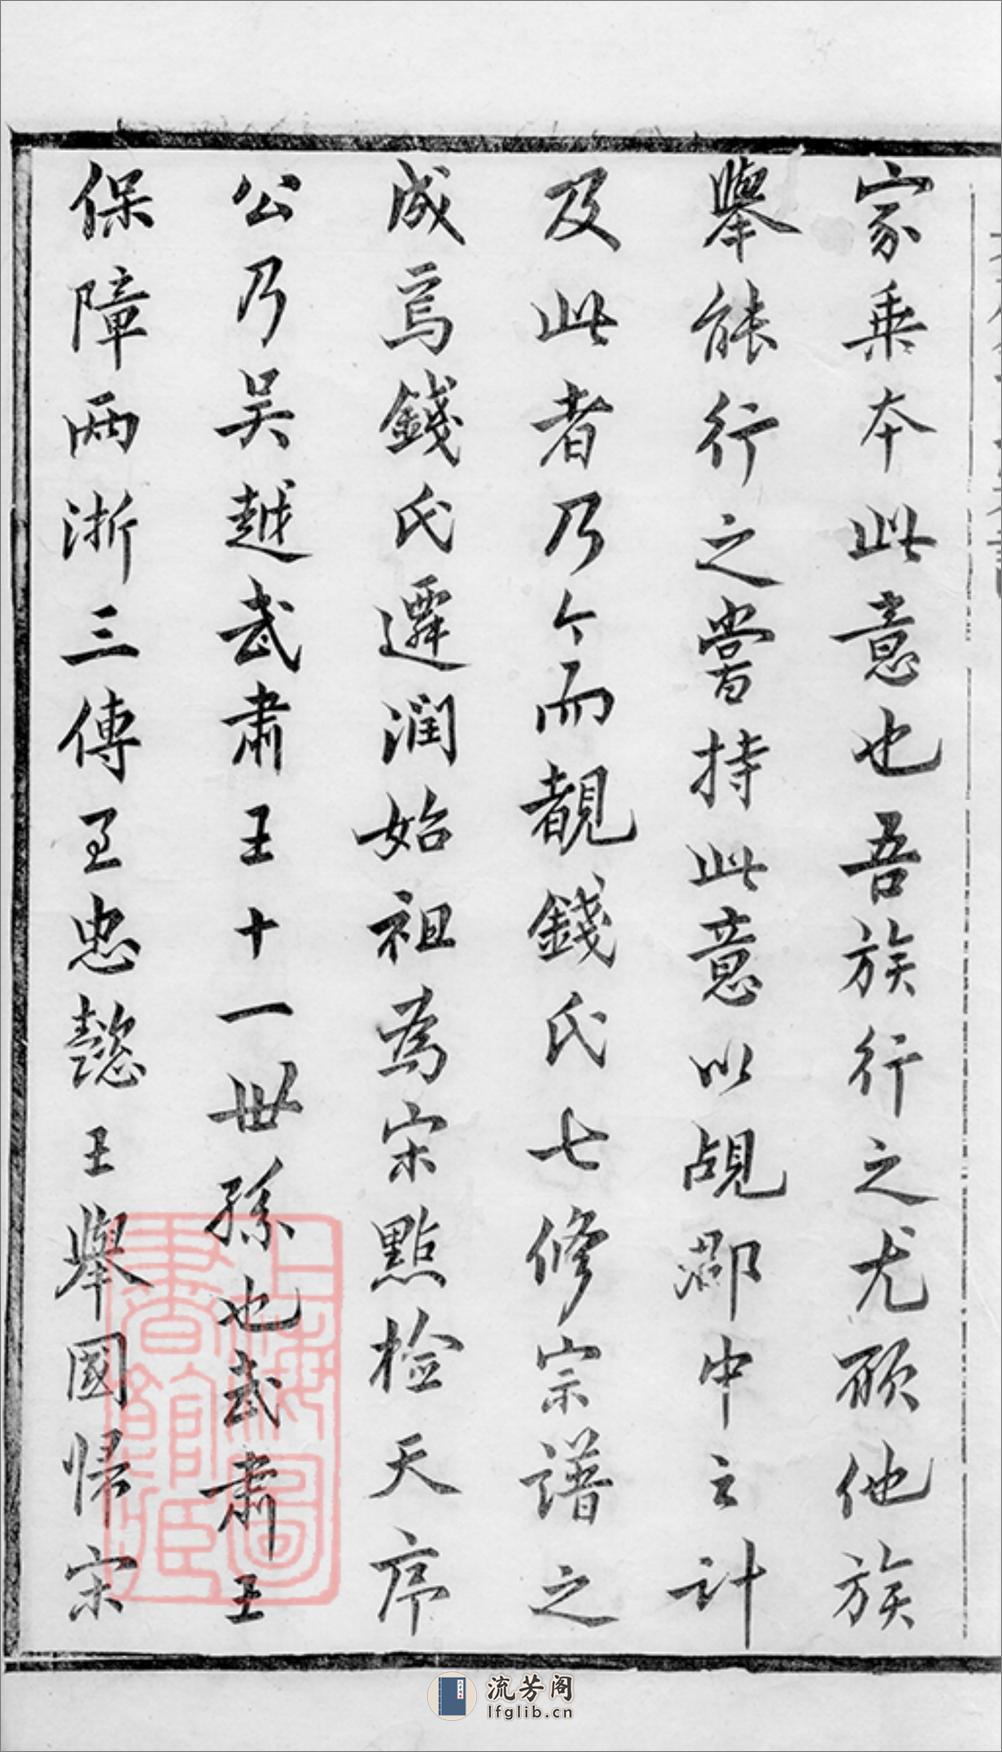 家乘本此意也吾族行之尤願他族
舉能行之嘗持此意以覘郡中之計
及此者乃今而覩錢氏七修宗譜之
成焉錢氏遷潤始祖為宋點檢天序
公乃吳越武肅王十一世孫也武肅王
保障兩浙三傳至忠懿王舉國歸宋
上海圖書館藏
流芳阁
lfglib.cn